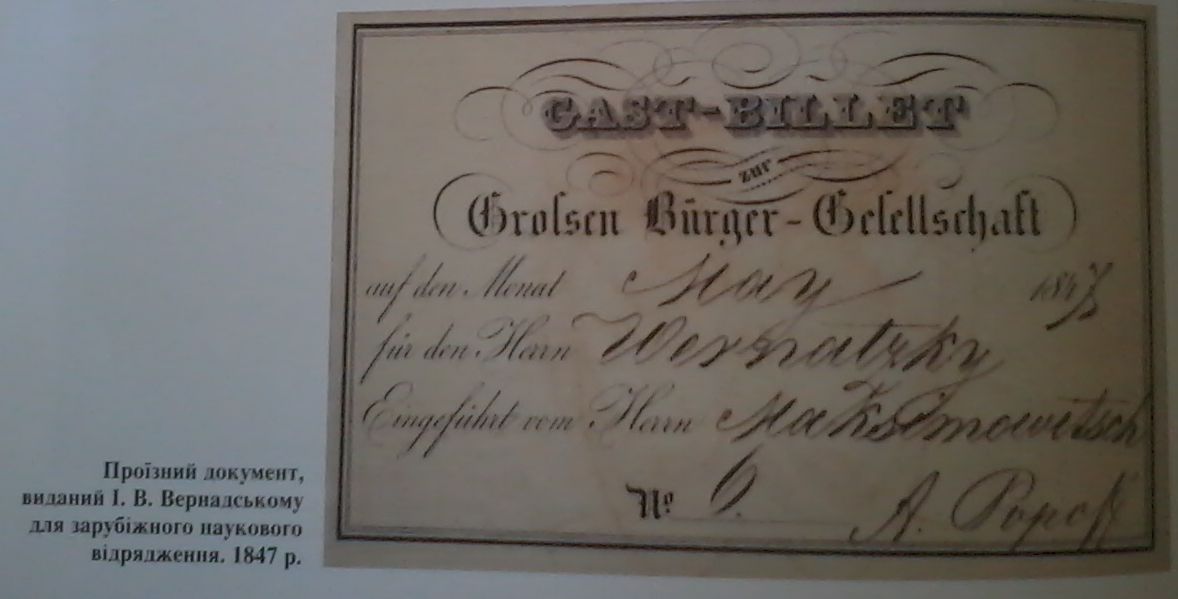 GAST-BILLET
zur
Grolsen Bürger-Gesellschaft
auf den Monat May 1847
für den Herrn Wernatzky
Eingeführt vom Herrn Maksimowitsch
No 6.
A. Popoff
Проїзний документ,
виданий І. В. Вернадському
для зарубіжного наукового
відрядження. 1847 р.